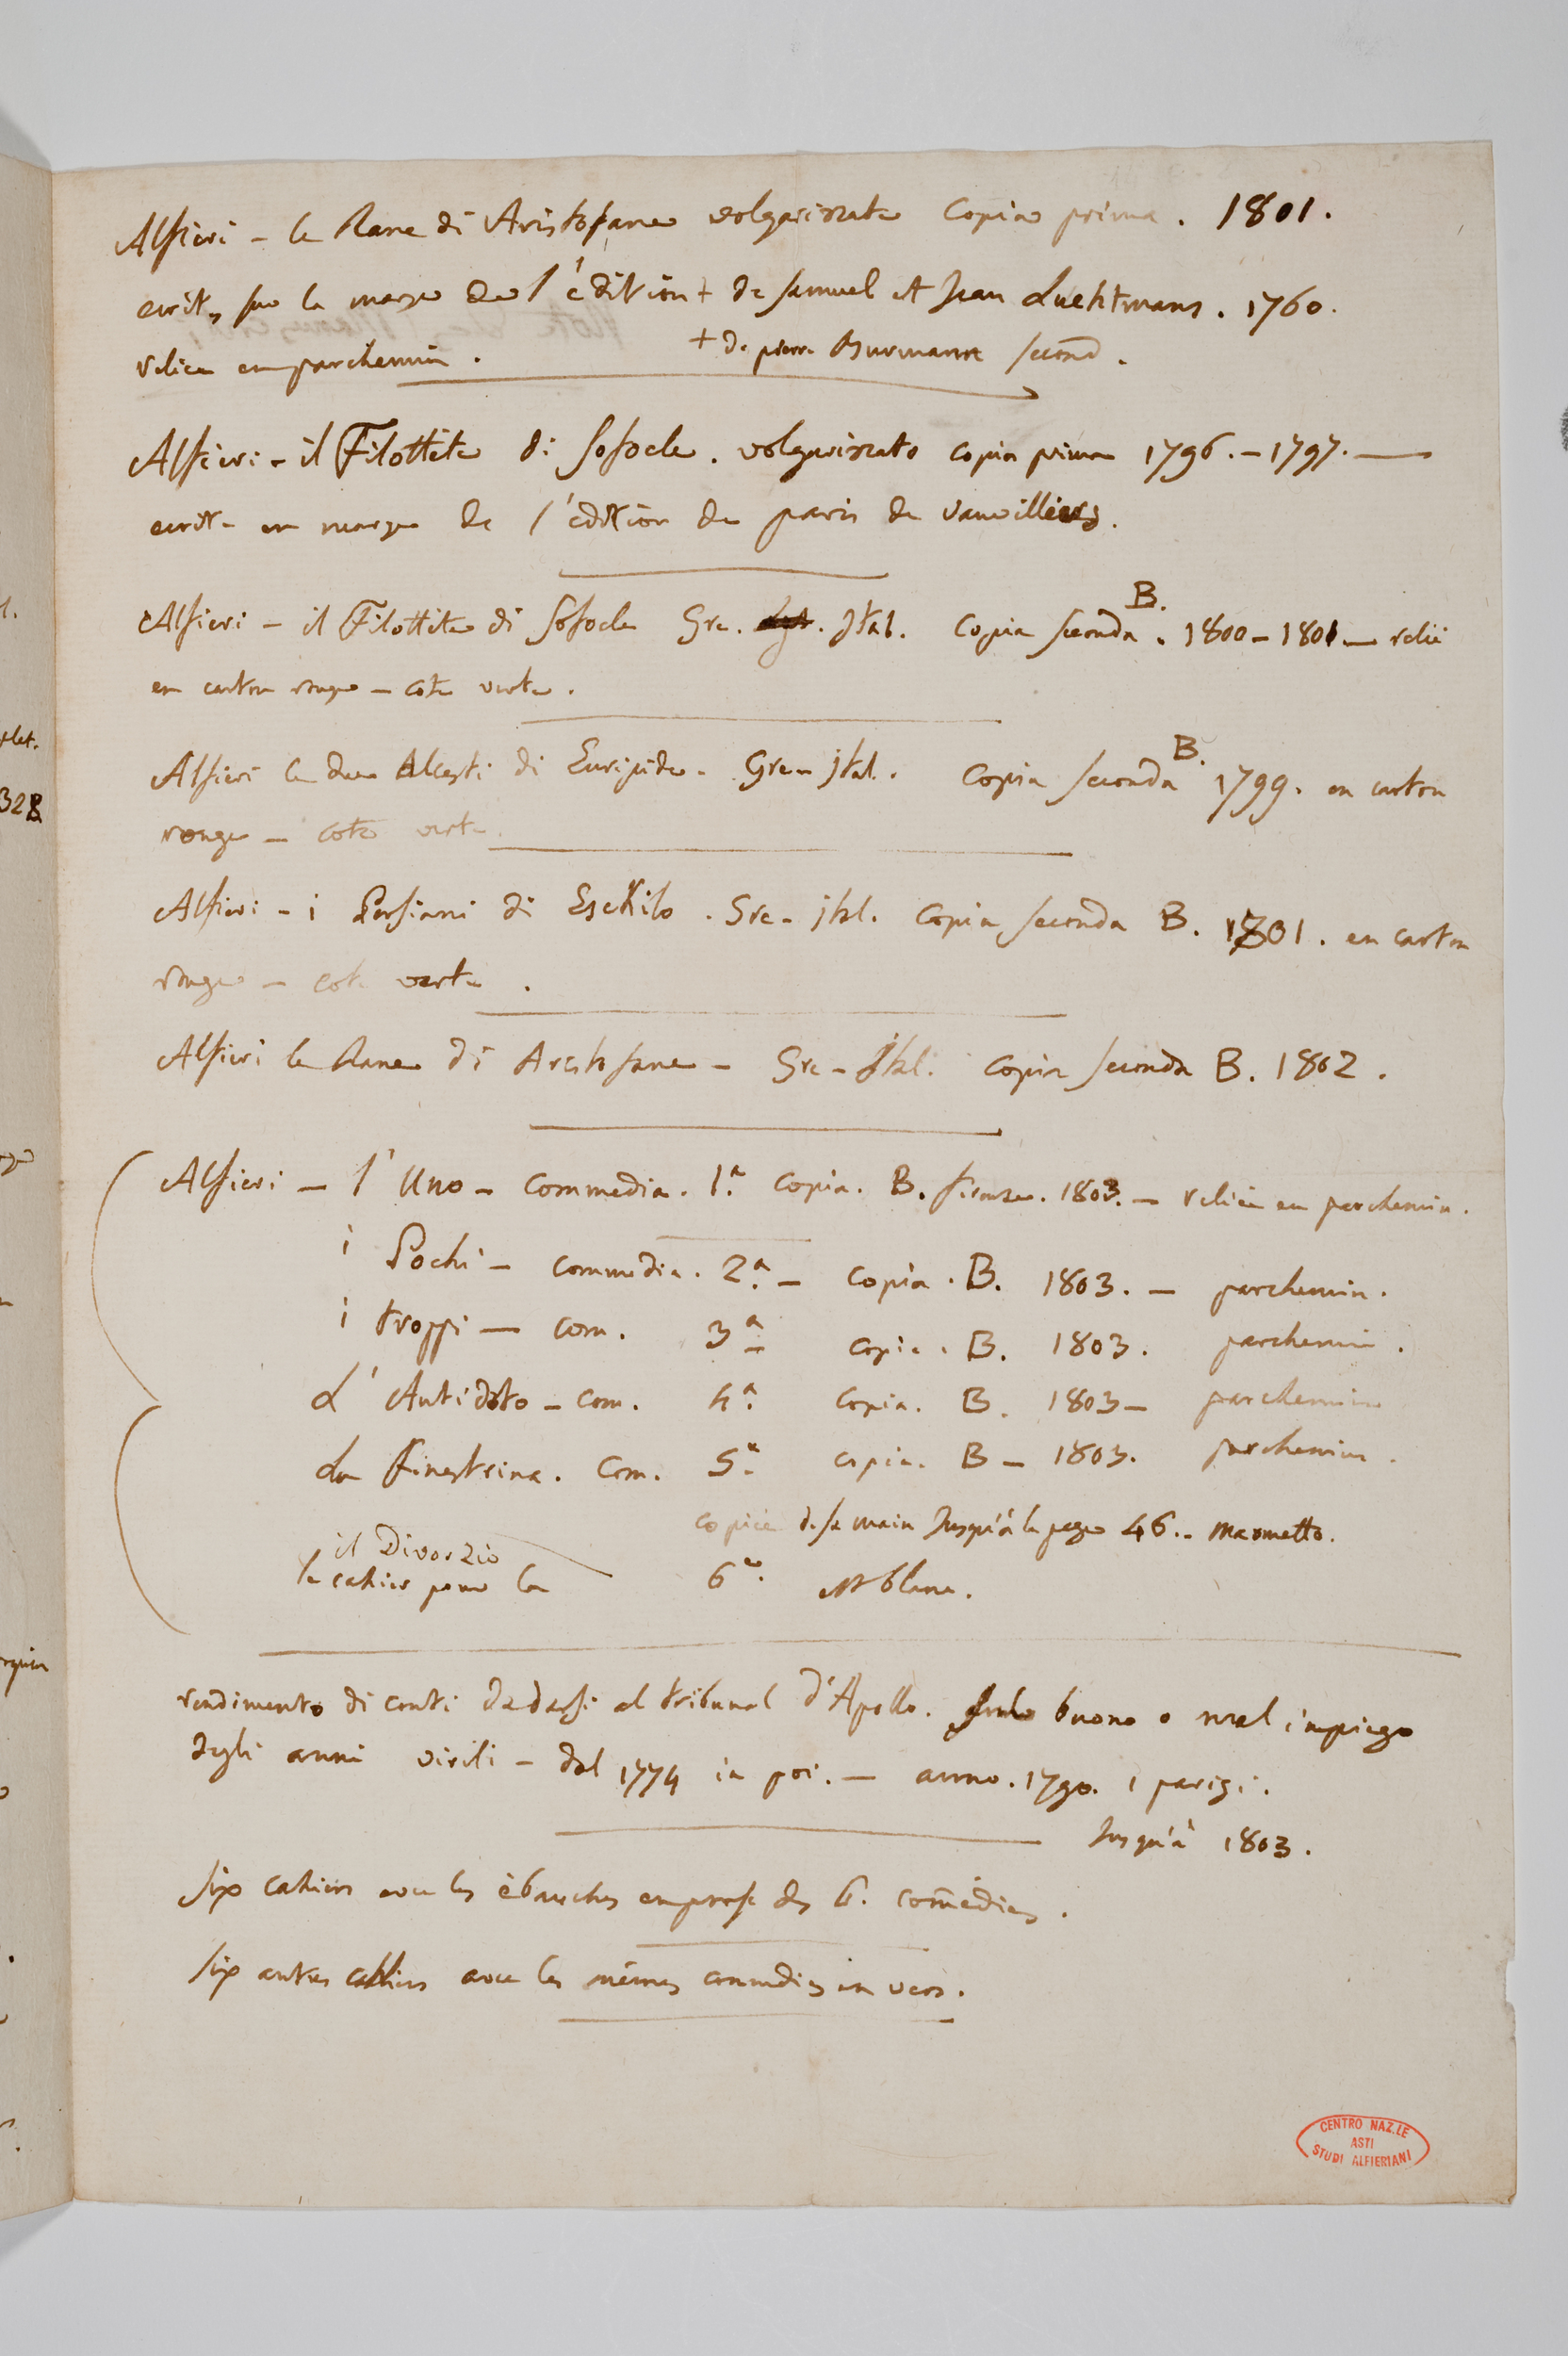 Alfieri - le Rane di Aristofane volgarizzate Copia prima. 1801.
ecrit, sur la marge de l'édition + de Samuel et Jean Luchtmans. 1760.
reliée en parchemin. + de pierre Burmann second.
Alfieri - il Filottete di Sofocle. volgarizzato copia prima 1796. - 1797. —
ecrit en marge de l'édition de paris de vauvilliers.
Alfieri - il Filottete di Sofocle Gre. Ital. Copia seconda B. 1800 - 1801 — relié
en carton rouge - coté verte.
Alfieri le due Alcesti di Euripide. Gre - ital. Copia seconda B. 1799. en carton
rouge - coté verte.
Alfieri - i Persiani di Eschilo. Gre - ital. Copia seconda B. 1801. en carton
rouge - coté verte.
Alfieri le Rane di Aristofane - Gre - Ital. Copia seconda B. 1802.
Alfieri — l'Uno - Commedia. 1.ª Copia. B. firenze. 1803. — reliée en parchemin.
i Pochi - commedia. 2.ª - Copia. B. 1803. — parchemin.
i troppi — com. 3.ª copia. B. 1803. parchemin.
L'Antidoto - com. 4.ª Copia. B. 1803 - parchemin
La Finestrina. Com. 5.ª copia. B - 1803. parchemin.
copiée de sa main Jusqu'à la page 46.. maometto.
il Divorzio
le cahier pour la 6.ª est blanc.
rendimento di conti da darsi al tribunal d'Apollo. sul buono o mal impiego
degli anni virili - dal 1774 in poi. — anno. 1790. parigi.
Jusqu'à 1803.
Six cahiers avec les ébauches en prose des 6. comédies.
Six autres cahiers avec les mêmes comedies en vers.
CENTRO NAZ.LE
ASTI
STUDI ALFIERIANI